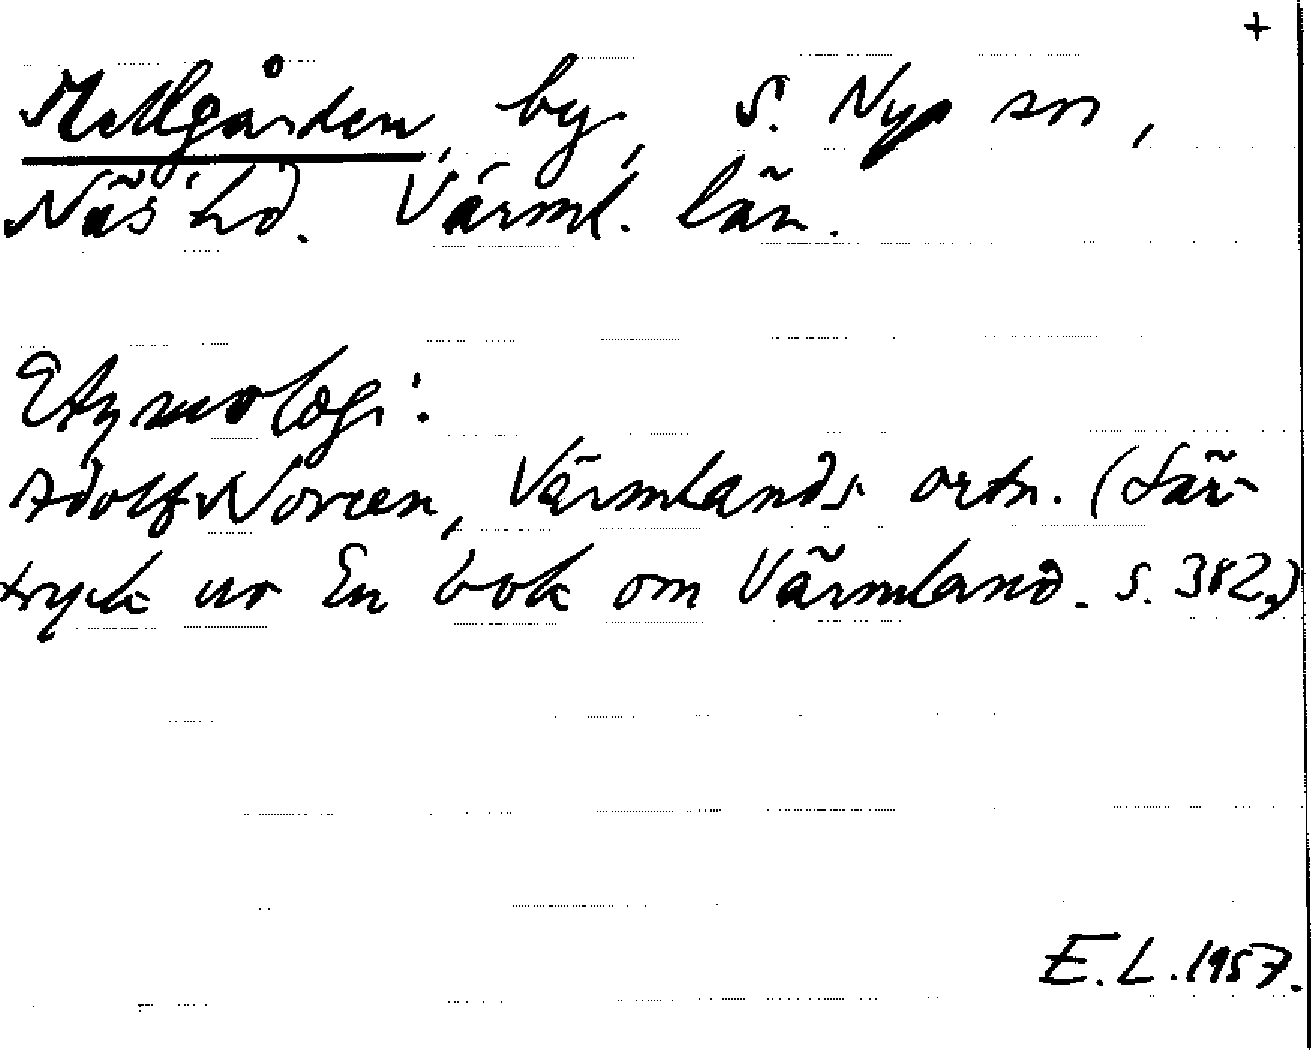 +
Mellgården, by, S. Ny sn,
Näs hd. Värml. län.
Etymologi:
Adolf Noreen, Värmlands ortn. (Sär-
tryck ur En bok om Värmland. s. 382,)
E.L. 1957.